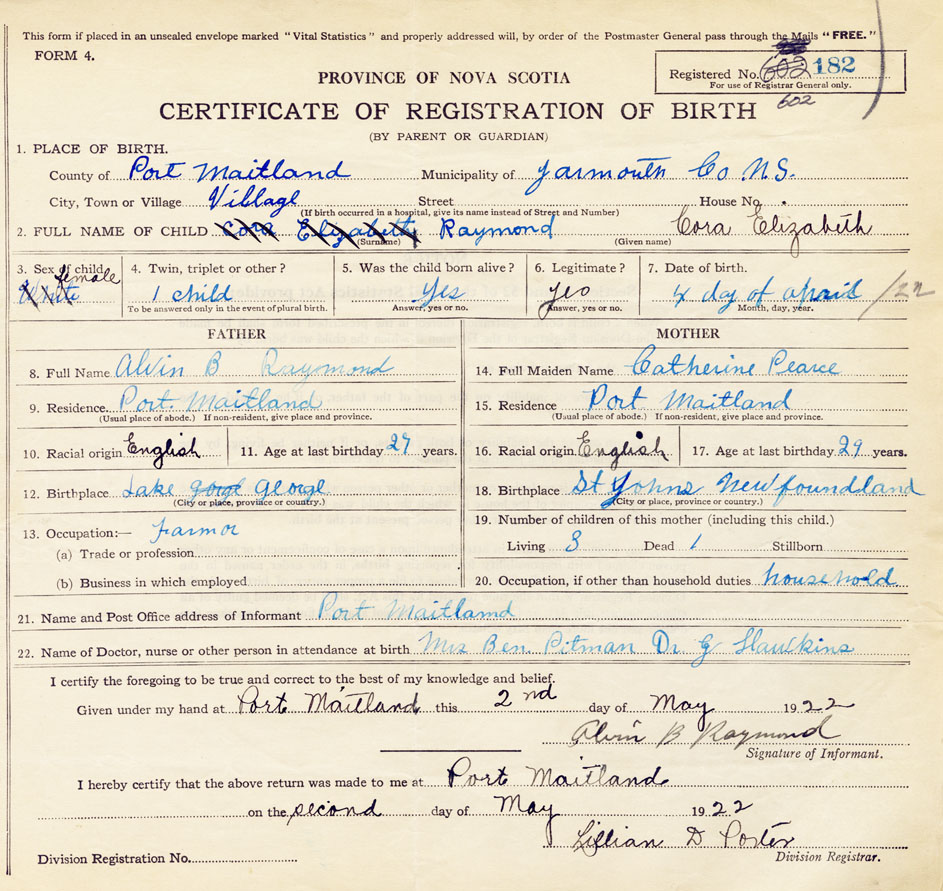 This form if placed in an unsealed envelope marked "Vital Statistics" and properly addressed will, by order of the Postmaster General pass through the Mails "FREE."
FORM 4.
PROVINCE OF NOVA SCOTIA
Registered No. 602 182
For use of Registrar General only.
602
CERTIFICATE OF REGISTRATION OF BIRTH
(BY PARENT OR GUARDIAN)
1. PLACE OF BIRTH.
County of Port Maitland Municipality of Yarmouth Co N.S.
City, Town or Village Village Street House No.
(If birth occurred in a hospital, give its name instead of Street and Number)
2. FULL NAME OF CHILD Cora Elizabeth Raymond Cora Elizabeth
(Surname) (Given name)
3. Sex of child White female 4. Twin, triplet or other? 1 child 5. Was the child born alive? Yes 6. Legitimate? yes 7. Date of birth. 4 day of April /22
To be answered only in the event of plural birth. Answer, yes or no. Answer, yes or no. Month, day, year.
FATHER MOTHER
8. Full Name Alvin B Raymond 14. Full Maiden Name Catherine Pearce
9. Residence Port Maitland 15. Residence Port Maitland
(Usual place of abode.) If non-resident, give place and province. (Usual place of abode.) If non-resident, give place and province.
10. Racial origin English 11. Age at last birthday 27 years. 16. Racial origin English 17. Age at last birthday 29 years.
12. Birthplace Lake George 18. Birthplace St Johns Newfoundland
(City or place, province or country.) (City or place, province or country.)
13. Occupation:— Farmor 19. Number of children of this mother (including this child.)
(a) Trade or profession Living 3 Dead 1 Stillborn
(b) Business in which employed 20. Occupation, if other than household duties. household
21. Name and Post Office address of Informant Port Maitland
22. Name of Doctor, nurse or other person in attendance at birth Mrs Ben. Pitman Dr. G Hawkins
I certify the foregoing to be true and correct to the best of my knowledge and belief.
Given under my hand at Port Maitland this 2nd day of May 1922
Alvin B Raymond
Signature of Informant.
I hereby certify that the above return was made to me at Port Maitland
on the second day of May 1922
Lillian D Porter
Division Registrar.
Division Registration No.